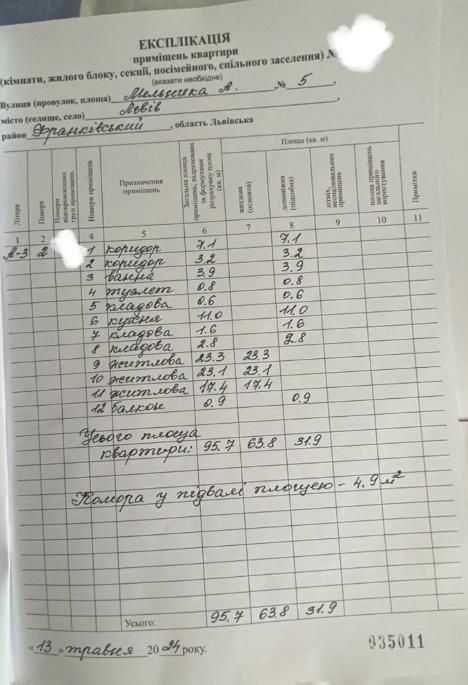 ЕКСПЛІКАЦІЯ
приміщень квартири
(кімнати, жилого блоку, секції, посімейного, спільного заселення) №
(вказати необхідне)
Вулиця (провулок, площа) Мельника А. № 5,
місто (селище, село) Львів,
район Франківський, область Львівська
Літера
Поверх
Номери приміщень
Призначення приміщень
Площа (кв. м)
житлова (основна)
допоміжна (підсобна)
Примітки
1 2 4 5 6 7 8 9 10 11
А-3 2 1 коридор 7.1 7.1
2 коридор 3.2 3.2
3 ванна 3.9 3.9
4 туалет 0.8 0.8
5 кладова 0.6 0.6
6 кухня 11.0 11.0
7 кладова 1.6 1.6
8 кладова 2.8 2.8
9 житлова 23.3 23.3
10 житлова 23.1 23.1
11 житлова 17.4 17.4
12 балкон 0.9 0.9
Усього площа
квартири: 95.7 63.8 31.9
Комора у підвалі площею - 4.9 м²
Усього: 95.7 63.8 31.9
"13" травня 2024 року.
935011